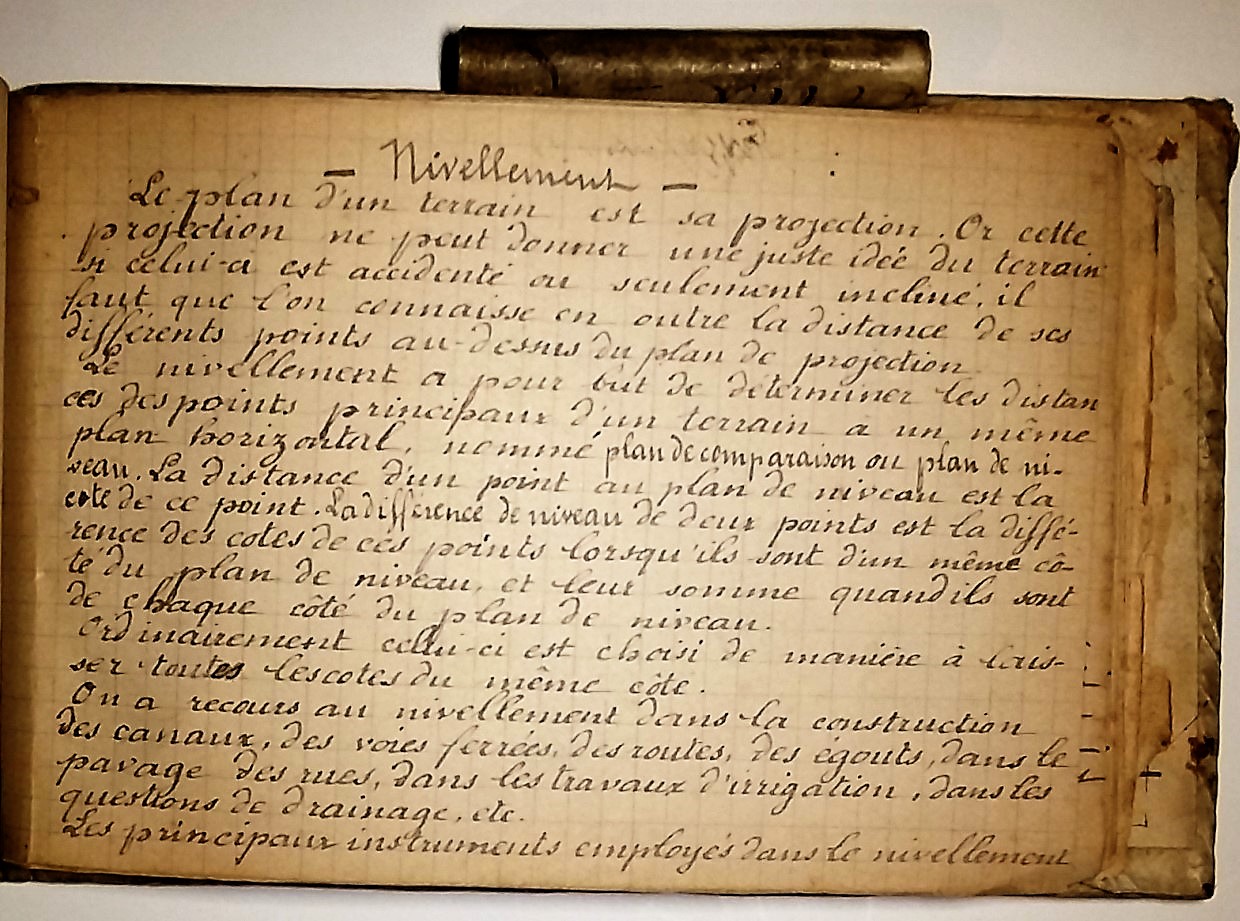 — Nivellement —
Le plan d'un terrain est sa projection. Or cette
projection ne peut donner une juste idée du terrain
si celui-ci est accidenté ou seulement incliné, il
faut que l'on connaisse en outre la distance de ses
différents points au-dessus du plan de projection.
Le nivellement a pour but de déterminer les distan
ces des points principaux d'un terrain à un même
plan horizontal, nommé plan de comparaison ou plan de ni-
veau. La distance d'un point au plan de niveau est la
cote de ce point. La différence de niveau de deux points est la diffé-
rence des cotes de ces points lorsqu'ils sont d'un même cô-
té du plan de niveau, et leur somme quand ils sont
de chaque côté du plan de niveau.
Ordinairement celui-ci est choisi de manière à lais-
ser toutes les cotes du même côté.
On a recours au nivellement dans la construction
des canaux, des voies ferrées, des routes, des égouts, dans le
pavage des rues, dans les travaux d'irrigation, dans les
questions de drainage, etc.
Les principaux instruments employés dans le nivellement